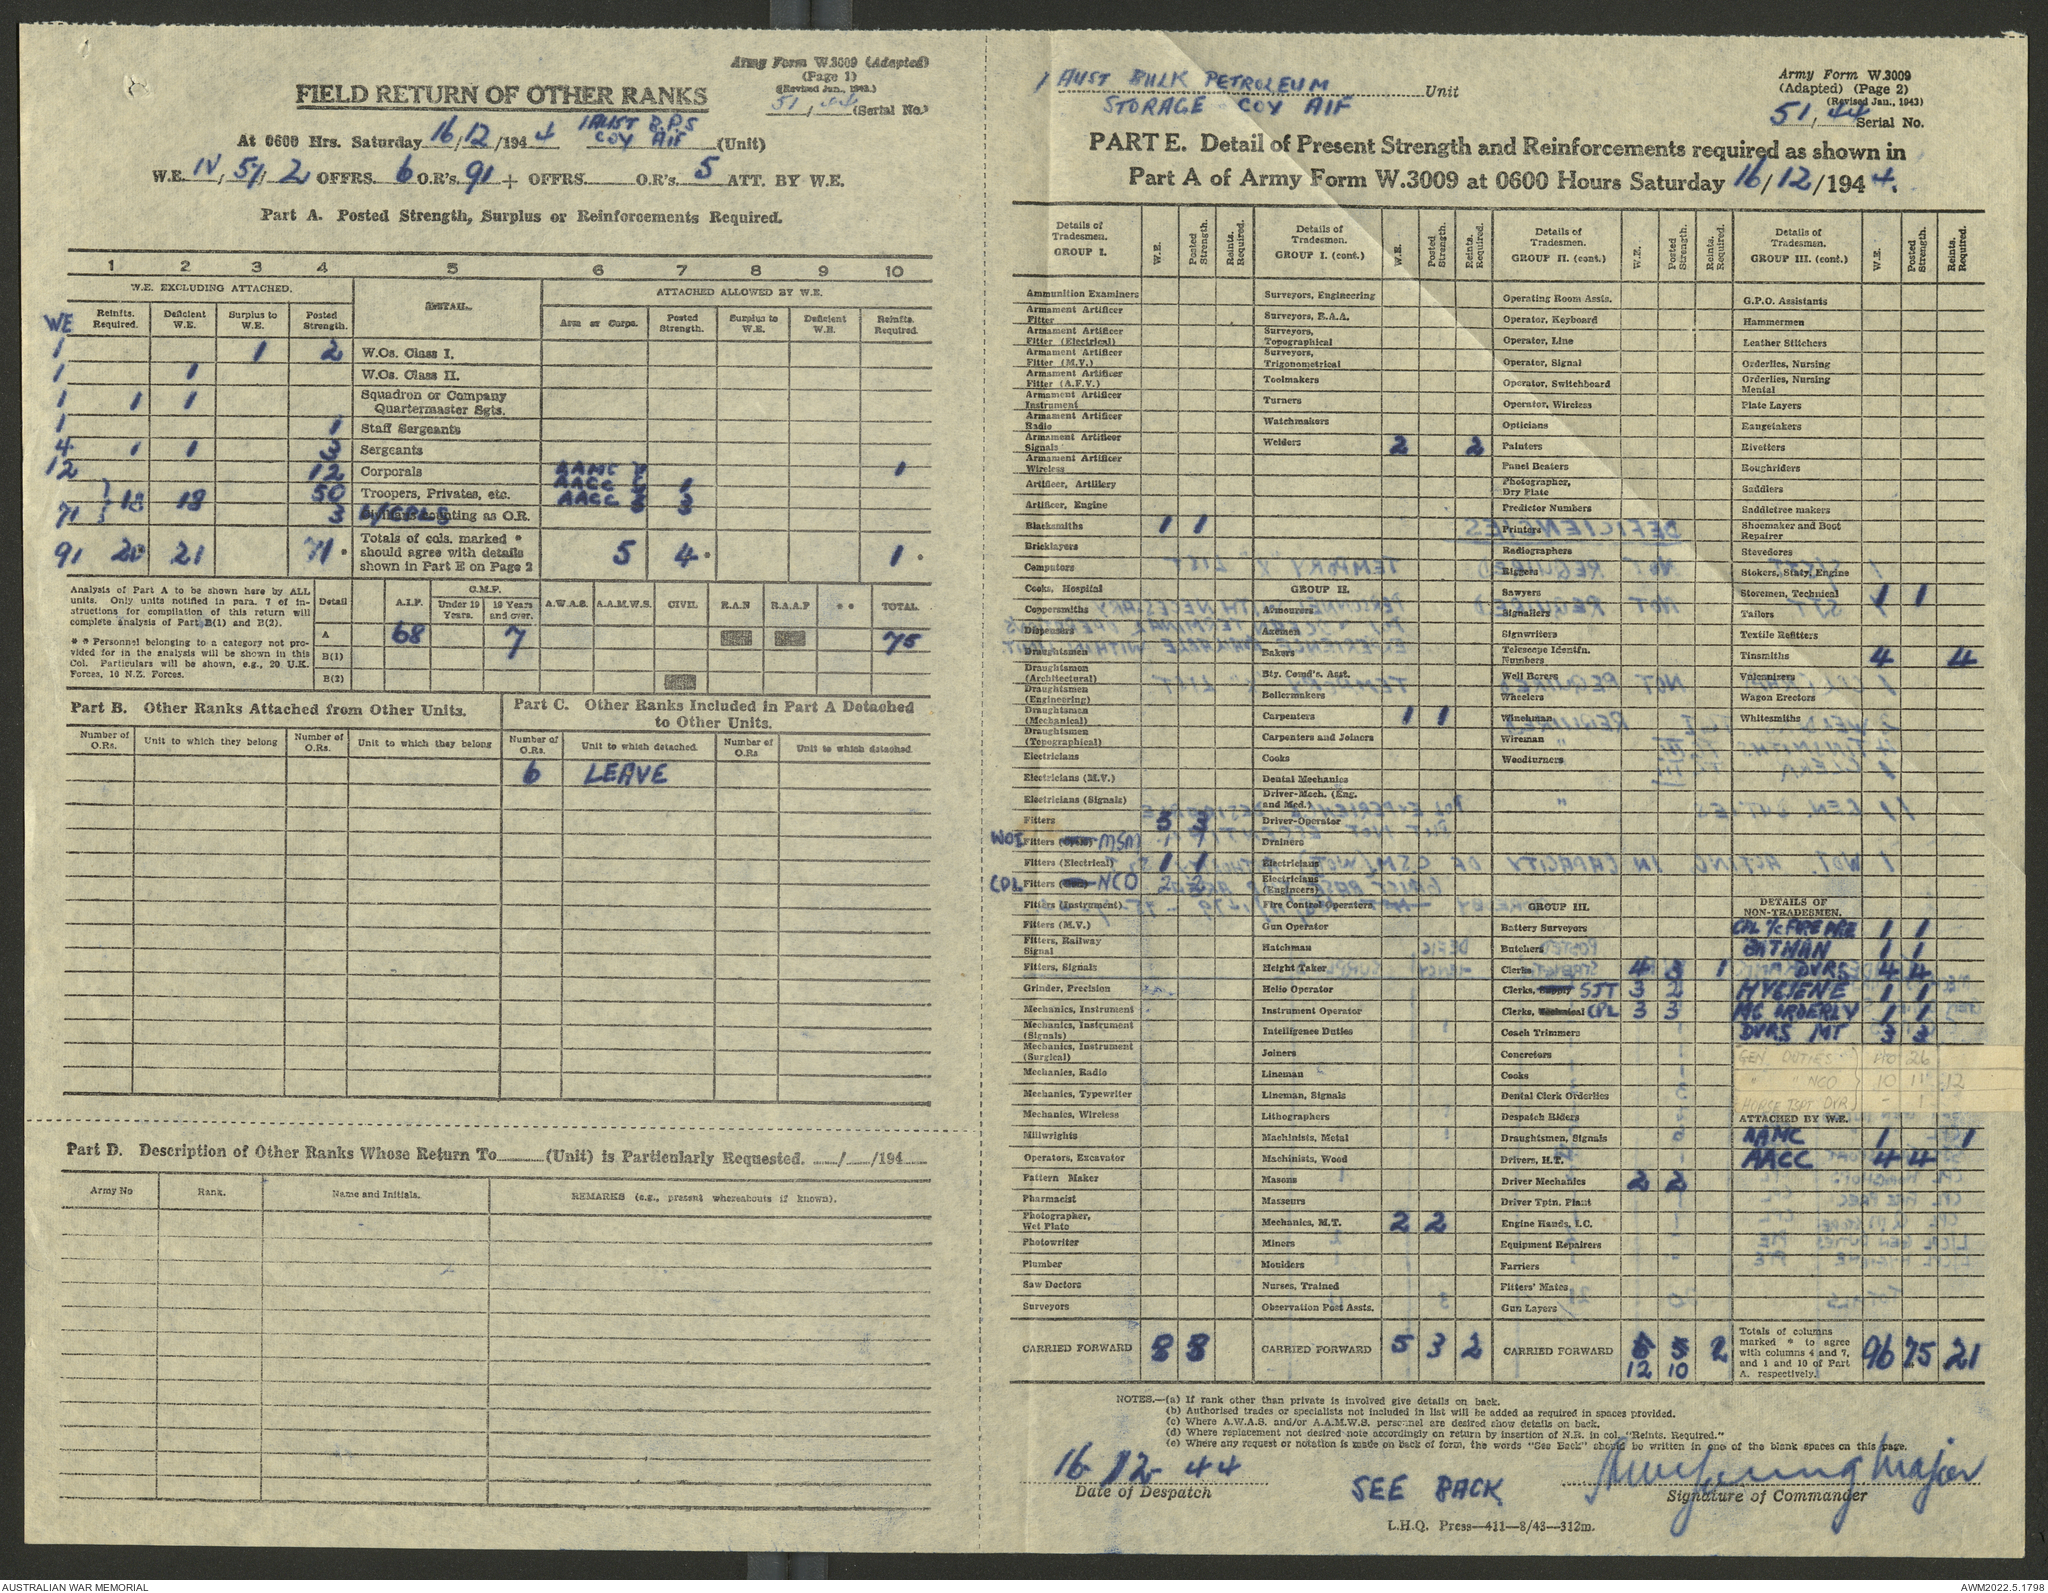 Army Form W.3009 (Adapted)
(Page 1)
(Revised Jun., 1943.)
51/44 (Serial No.)
FIELD RETURN OF OTHER RANKS
At 0600 Hrs. Saturday 16/12/1944 1 AUST B.P.S COY AIF (Unit)
W.E. IV/51/2 OFFRS. 6 O.R's. 91 + OFFRS. O.R's. 5 ATT. BY W.E.
Part A. Posted Strength, Surplus or Reinforcements Required.
1 2 3 4 5 6 7 8 9 10
W.E. EXCLUDING ATTACHED. DETAIL. ATTACHED ALLOWED BY W.E.
WE Reinfts. Required. Deficient W.E. Surplus to W.E. Posted Strength. Arm or Corps. Posted Strength. Surplus to W.E. Deficient W.E. Reinfts. Required.
1 1 2 W.Os. Class I.
1 1 W.Os. Class II.
1 1 1 Squadron or Company Quartermaster Sgts.
1 1 Staff Sergeants
4 1 1 3 Sergeants
12 12 Corporals AAMC 1 1
71 18 18 50 Troopers, Privates, etc. AACC 1 1
AACC 3 3
3 L/CPLS counting as O.R.
91 20 21 71 * Totals of cols. marked * should agree with details shown in Part E on Page 2 5 4 * 1 *
Analysis of Part A to be shown here by ALL units. Only units notified in para. 7 of instructions for compilation of this return will complete analysis of Part B(1) and B(2).
* * Personnel belonging to a category not provided for in the analysis will be shown in this Col. Particulars will be shown, e.g., 20 U.K. Forces, 10 N.Z. Forces.
Detail A.I.F. C.M.F. Under 19 Years. 19 Years and over. A.W.A.S. A.A.M.W.S. CIVIL R.A.N R.A.A.F * * TOTAL
A 68 7 75
B(1)
B(2)
Part B. Other Ranks Attached from Other Units.
Part C. Other Ranks Included in Part A Detached to Other Units.
Number of O.Rs. Unit to which they belong Number of O.Rs. Unit to which they belong Number of O.Rs. Unit to which detached. Number of O.Rs Unit to which detached
6 LEAVE
Part D. Description of Other Ranks Whose Return To (Unit) is Particularly Requested. / /194
Army No Rank. Name and Initials. REMARKS (e.g., present whereabouts if known).
1 AUST BULK PETROLEUM
STORAGE COY AIF Unit
Army Form W.3009
(Adapted) (Page 2)
(Revised Jan., 1943)
51/44 Serial No.
PART E. Detail of Present Strength and Reinforcements required as shown in
Part A of Army Form W.3009 at 0600 Hours Saturday 16/12/1944.
Details of Tradesmen. GROUP I. W.E. Posted Strength. Reints. Required.
Ammunition Examiners
Armament Artificer Fitter
Armament Artificer Fitter (Electrical)
Armament Artificer Fitter (M.V.)
Armament Artificer Fitter (A.F.V.)
Armament Artificer Instrument
Armament Artificer Radio
Armament Artificer Signals
Armament Artificer Wireless
Artificer, Artillery
Artificer, Engine
Blacksmiths 1 1
Bricklayers
Computors
Cooks, Hospital
Coppersmiths
Dispensers
Draughtsmen
Draughtsmen (Architectural)
Draughtsmen (Engineering)
Draughtsmen (Mechanical)
Draughtsmen (Topographical)
Electricians
Electricians (M.V.)
Electricians (Signals)
Fitters 3 3
WOI Fitters MSM 1 1
Fitters (Electrical) 1 1
CPL Fitters NCO 2 2
Fitters (Instrument)
Fitters (M.V.)
Fitters, Railway Signal
Fitters, Signals
Grinder, Precision
Mechanics, Instrument
Mechanics, Instrument (Signals)
Mechanics, Instrument (Surgical)
Mechanics, Radio
Mechanics, Typewriter
Mechanics, Wireless
Millwrights
Operators, Excavator
Pattern Maker
Pharmacist
Photographer, Wet Plate
Photowriter
Plumber
Saw Doctors
Surveyors
CARRIED FORWARD 8 8
Details of Tradesmen. GROUP I. (cont.) W.E. Posted Strength. Reints. Required.
Surveyors, Engineering
Surveyors, R.A.A.
Surveyors, Topographical
Surveyors, Trigonometrical
Toolmakers
Turners
Watchmakers
Welders 2 2
GROUP II.
Armourers
Axemen
Bakers
Bty. Comd's. Asst.
Boilermakers
Carpenters 1 1
Carpenters and Joiners
Cooks
Dental Mechanics
Driver-Mech. (Eng. and Med.)
Driver-Operator
Drainers
Electricians
Electricians (Engineers)
Fire Control Operators
Gun Operator
Hatchman
Height Taker
Helio Operator
Instrument Operator
Intelligence Duties
Joiners
Lineman
Lineman, Signals
Lithographers
Machinists, Metal
Machinists, Wood
Masons
Masseurs
Mechanics, M.T. 2 2
Miners
Moulders
Nurses, Trained
Observation Post Assts.
CARRIED FORWARD 5 3 2
Details of Tradesmen. GROUP II. (cont.) W.E. Posted Strength. Reints. Required.
Operating Room Assts.
Operator, Keyboard
Operator, Line
Operator, Signal
Operator, Switchboard
Operator, Wireless
Opticians
Painters
Panel Beaters
Photographer, Dry Plate
Predictor Numbers
Printers
Radiographers
Riggers
Sawyers
Signallers
Signwriters
Telescope Identfn. Numbers
Well Borers
Wheelers
Winchman
Wireman
Woodturners
GROUP III.
Battery Surveyors
Butchers
Clerks 4 3 1
Clerks, SJT 3 2
Clerks, CPL 3 3
Coach Trimmers
Concretors
Cooks
Dental Clerk Orderlies
Despatch Riders
Draughtsmen, Signals
Drivers, H.T.
Driver Mechanics 2 2
Driver Tptn. Plant
Engine Hands, I.C.
Equipment Repairers
Farriers
Fitters' Mates
Gun Layers
CARRIED FORWARD 12 10 2
Details of Tradesmen. GROUP III. (cont.) W.E. Posted Strength. Reints. Required.
G.P.O. Assistants
Hammermen
Leather Stitchers
Orderlies, Nursing
Orderlies, Nursing Mental
Plate Layers
Rangetakers
Rivetters
Roughriders
Saddlers
Saddletree makers
Shoemaker and Boot Repairer
Stevedores
Stokers, Staty. Engine
Storemen, Technical 1 1
Tailors
Textile Refitters
Tinsmiths 4 4
Vulcanizers
Wagon Erectors
Whitesmiths
DETAILS OF NON-TRADESMEN.
CPL I/C FIRE PRE 1 1
BATMAN 1 1
DVRS 4 4
HYGIENE 1 1
MC ORDERLY 1 1
DVRS MT 3 3
GEN DUTIES 26
" " NCO 10 11 12
HORSE TSPT DVR - 1
ATTACHED BY W.E.
AAMC 1 1
AACC 4 4
Totals of columns marked * to agree with columns 4 and 7, and 1 and 10 of Part A. respectively. 96 75 21
NOTES.—(a) If rank other than private is involved give details on back.
(b) Authorised trades or specialists not included in list will be added as required in spaces provided.
(c) Where A.W.A.S. and/or A.A.M.W.S. personnel are desired show details on back.
(d) Where replacement not desired note accordingly on return by insertion of N.R. in col. "Reints. Required."
(e) Where any request or notation is made on back of form, the words "See Back" should be written in one of the blank spaces on this page.
16-12-44
Date of Despatch
SEE BACK
Major
Signature of Commander
L.H.Q. Press—411—8/43—312m.
AUSTRALIAN WAR MEMORIAL
AWM2022.5.1798